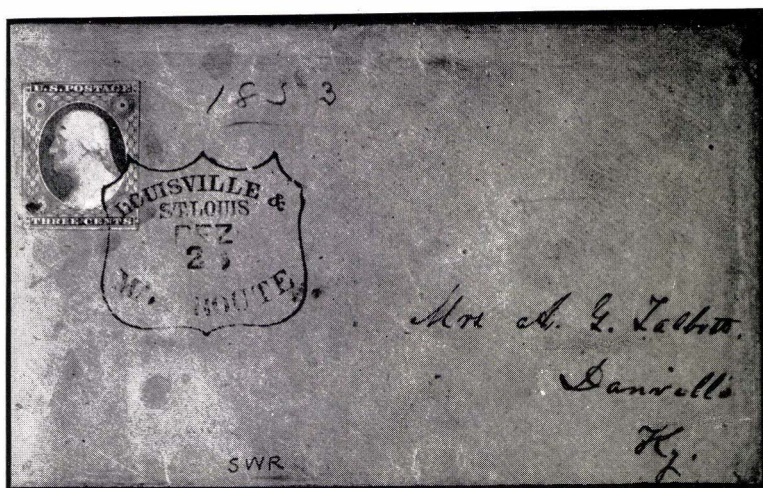 U.S. POSTAGE
THREE CENTS
1853
LOUISVILLE &
ST. LOUIS
ROUTE
Mrs A. G. Talbott.
Danville
Ky.
SWR